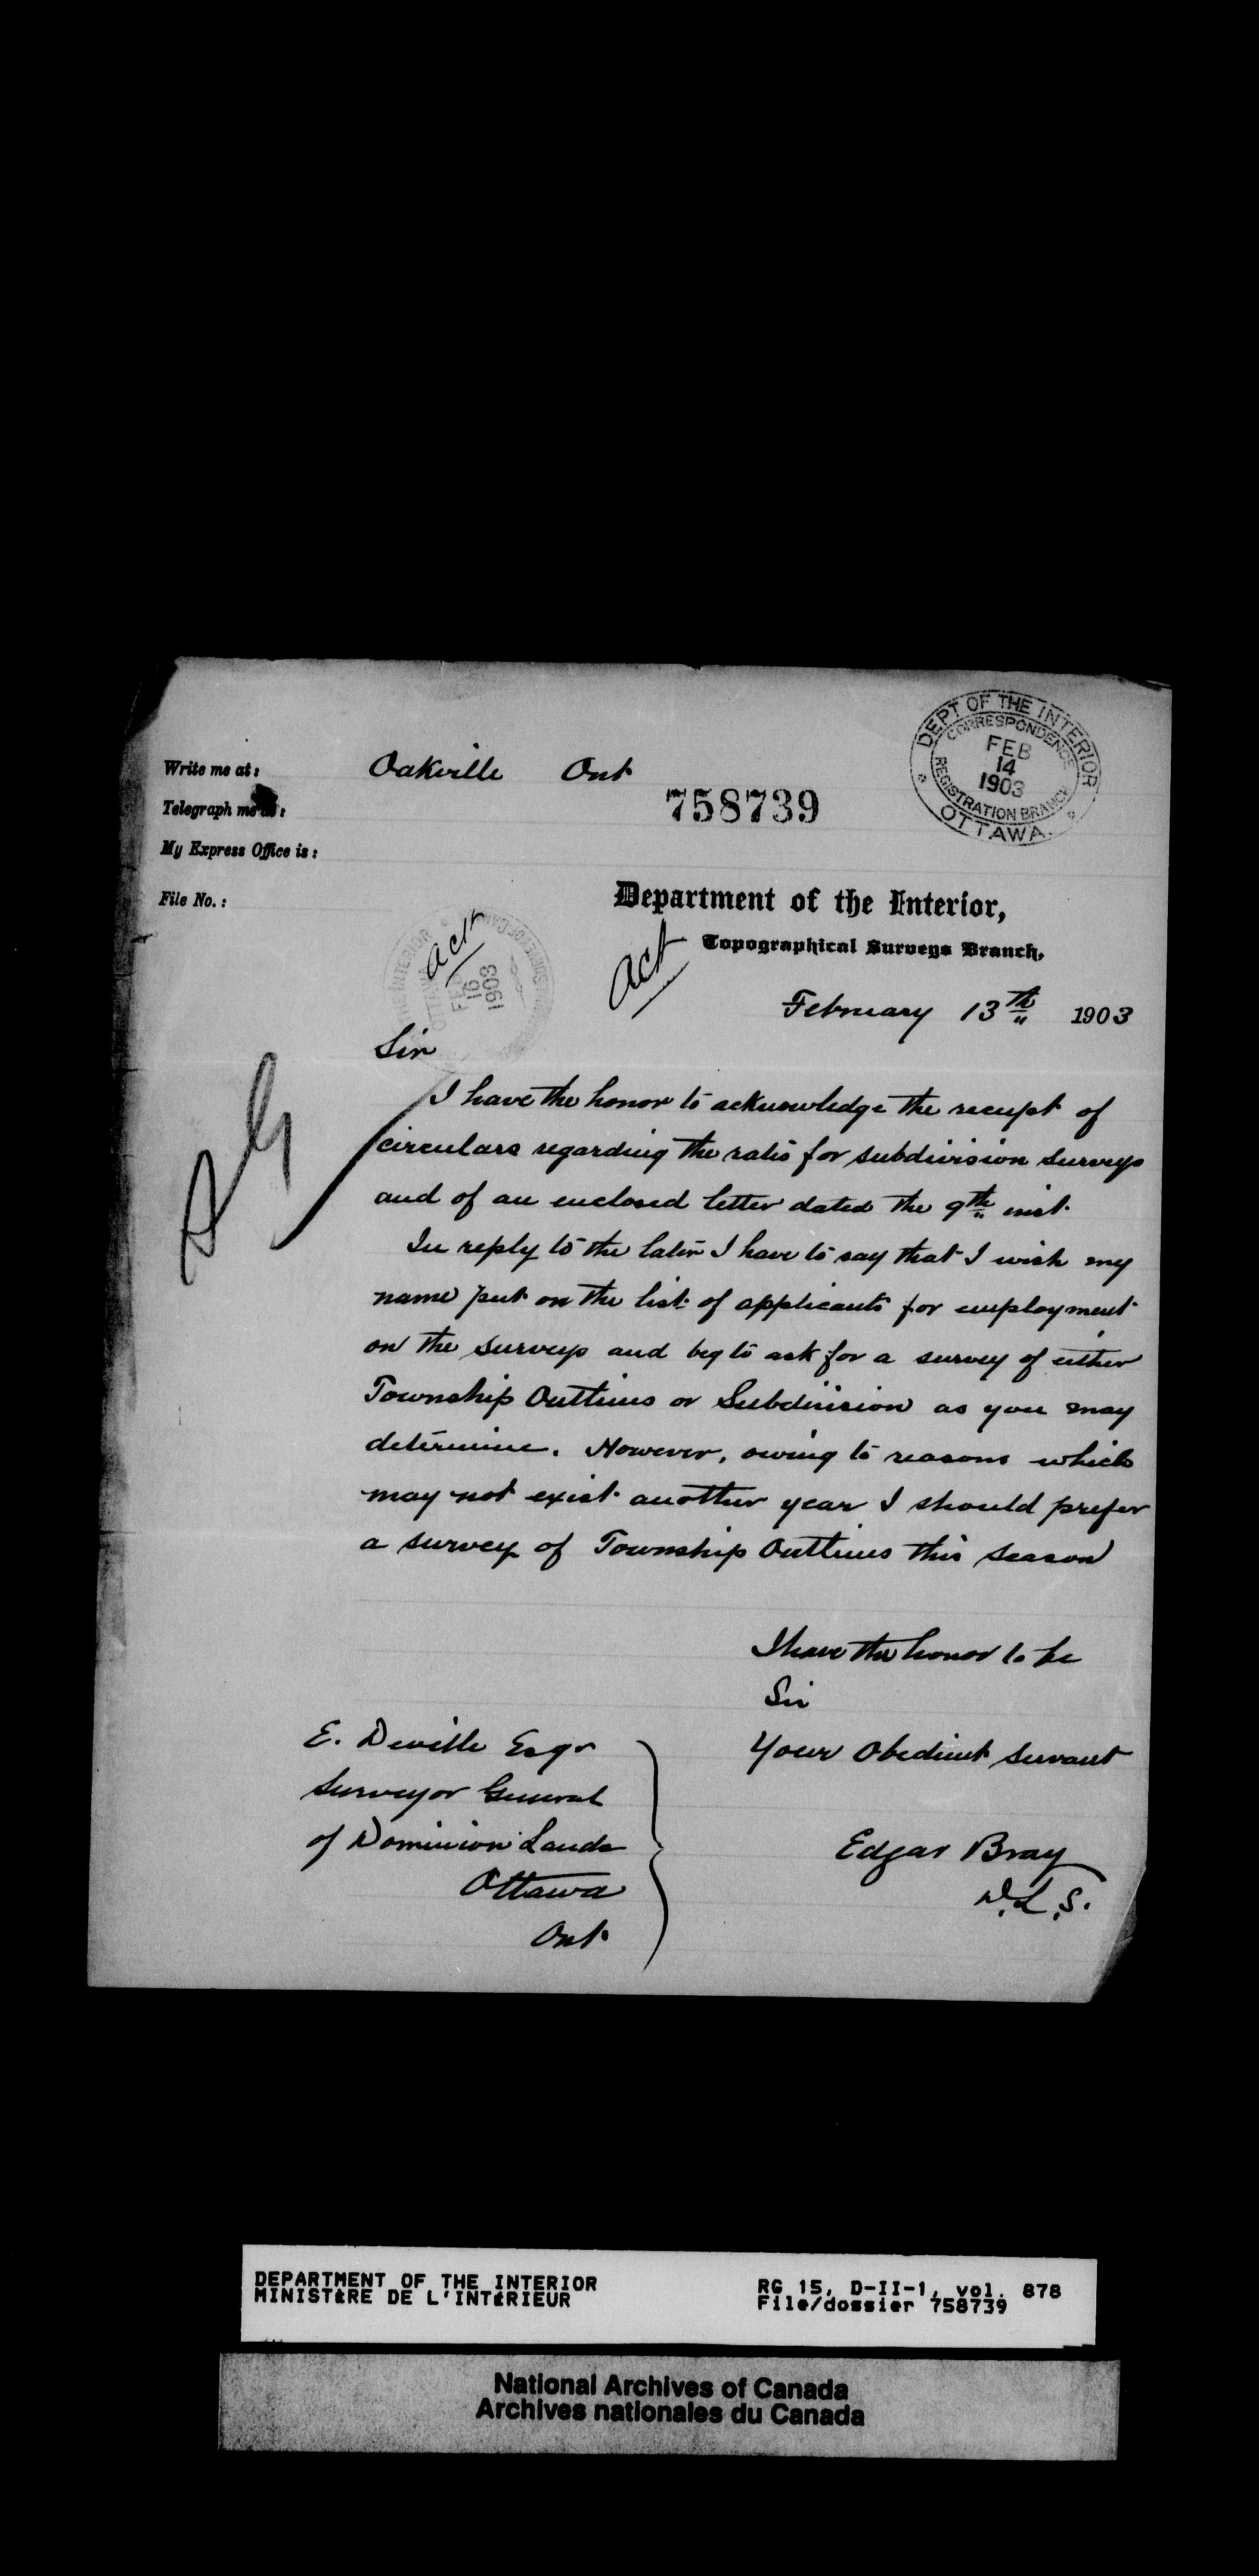 DEPT OF THE INTERIOR
CORRESPONDENCE
FEB
14
1903
REGISTRATION BRANCH
OTTAWA.
Write me at: Oakville Ont
758739
Telegraph me at:
My Express Office is:
File No.:
Department of the Interior,
Topographical Surveys Branch,
Act
Act
INTERIOR
OTTAWA
16
1903
February 13th 1903
Sir
I have the honor to acknowledge the receipt of
circulars regarding the rates for subdivision surveys
and of an enclosed letter dated the 9th inst.
In reply to the later I have to say that I wish my
name put on the list of applicants for employment
on the surveys and beg to ask for a survey of either
Township Outlines or Subdivision as you may
determine. However, owing to reasons which
may not exist another year I should prefer
a survey of Township Outlines this season
I have the honor to be
Sir
Your Obedient Servant
Edgar Bray
D.L.S.
E. Deville Esqr
Surveyor General
of Dominion Lands
Ottawa
Ont.
DEPARTMENT OF THE INTERIOR
MINISTÈRE DE L'INTÉRIEUR
RG 15, D-II-1, vol. 878
File/dossier 758739
National Archives of Canada
Archives nationales du Canada